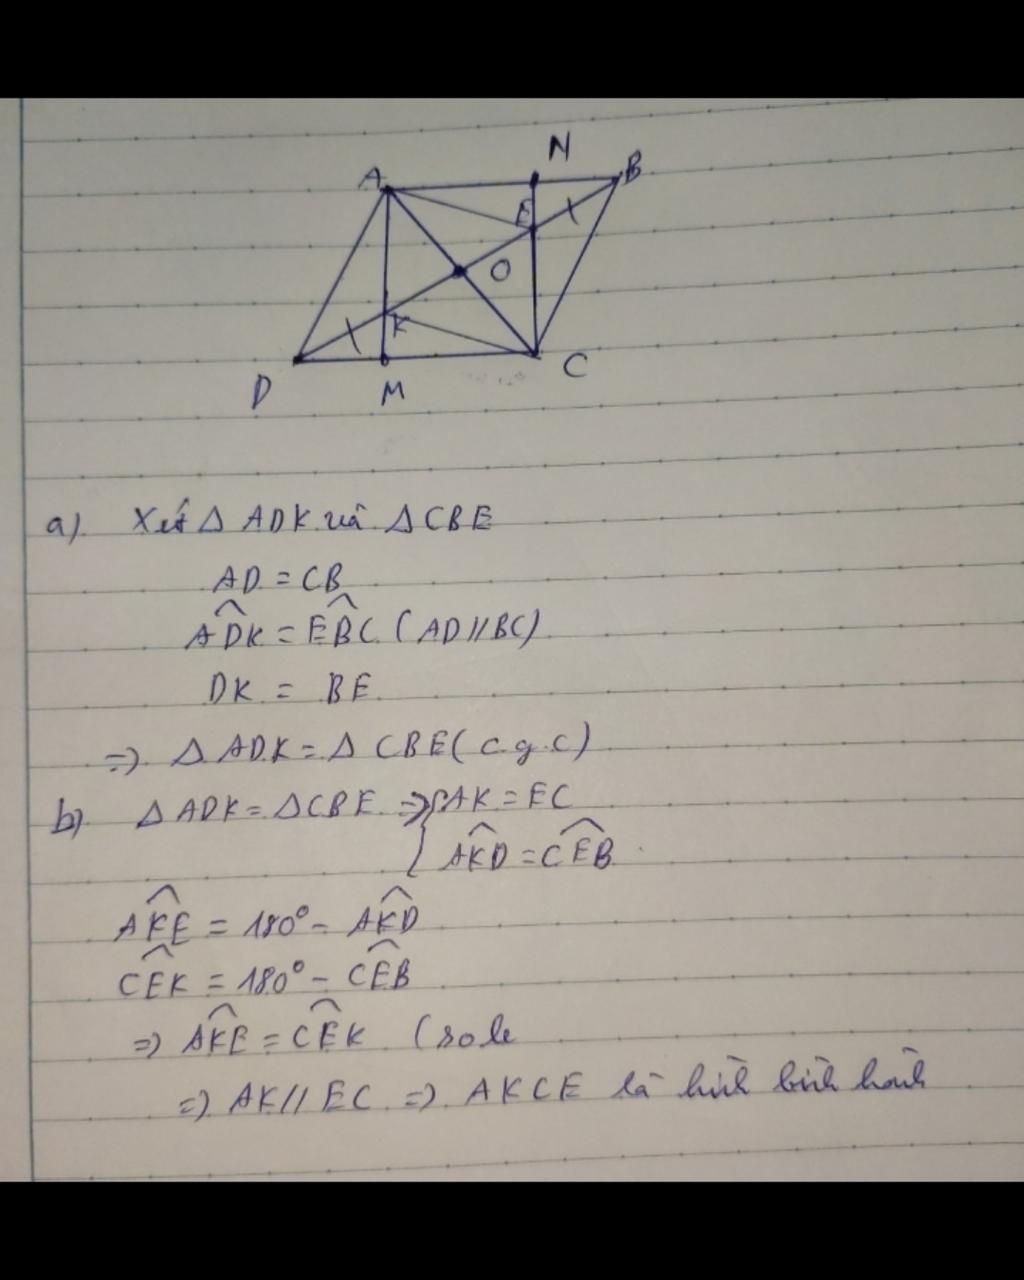 A N B
E
O
K
D M C
a) Xét Δ ADK và Δ CBE
AD = CB
ADK̂ = EBĈ (AD // BC)
DK = BE
=> Δ ADK = Δ CBE (c.g.c)
b) Δ ADK = Δ CBE => { AK = EC
AKD̂ = CEB̂
AKÊ = 180° - AKD̂
CEK̂ = 180° - CEB̂
=> AKÊ = CEK̂ (so le
=> AK // EC => AKCE là hình bình hành